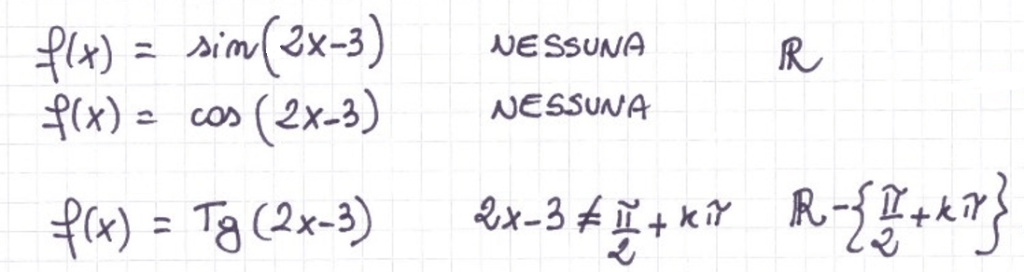 f(x) = sin(2x-3) NESSUNA ℝ
f(x) = cos(2x-3) NESSUNA
f(x) = Tg(2x-3) 2x-3 ≠ π/2 + kπ ℝ-{π/2 + kπ}